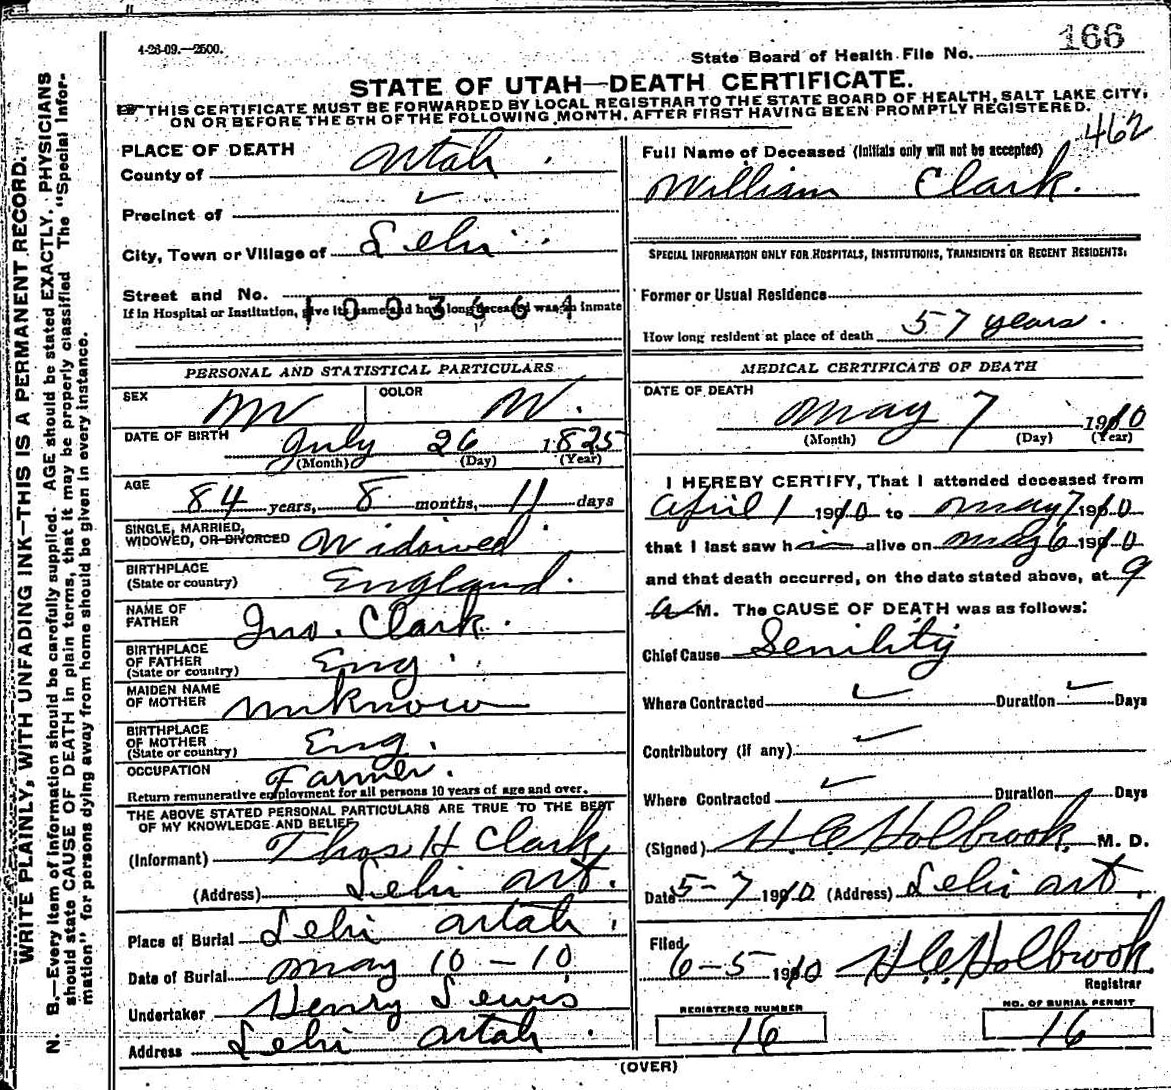 4-26-09.—2500.
166
State Board of Health File No.
STATE OF UTAH—DEATH CERTIFICATE.
THIS CERTIFICATE MUST BE FORWARDED BY LOCAL REGISTRAR TO THE STATE BOARD OF HEALTH, SALT LAKE CITY,
ON OR BEFORE THE 5TH OF THE FOLLOWING MONTH, AFTER FIRST HAVING BEEN PROMPTLY REGISTERED.
462
WRITE PLAINLY, WITH UNFADING INK—THIS IS A PERMANENT RECORD.
N. B.—Every item of information should be carefully supplied. AGE should be stated EXACTLY. PHYSICIANS
should state CAUSE OF DEATH in plain terms, that it may be properly classified. The "Special Infor-
mation" for persons dying away from home should be given in every instance.
PLACE OF DEATH
County of Utah
Precinct of
City, Town or Village of Lehi
Street and No.
1003661
If in Hospital or Institution, give its name and how long deceased was an inmate
PERSONAL AND STATISTICAL PARTICULARS
SEX M
COLOR W.
DATE OF BIRTH July 26 1825
(Month) (Day) (Year)
AGE 84 years, 8 months, 11 days
SINGLE, MARRIED,
WIDOWED, OR DIVORCED Widowed
BIRTHPLACE
(State or country) England.
NAME OF
FATHER Jno. Clark.
BIRTHPLACE
OF FATHER
(State or country) Eng.
MAIDEN NAME
OF MOTHER unknown
BIRTHPLACE
OF MOTHER
(State or country) Eng.
OCCUPATION Farmer.
Return remunerative employment for all persons 10 years of age and over.
THE ABOVE STATED PERSONAL PARTICULARS ARE TRUE TO THE BEST
OF MY KNOWLEDGE AND BELIEF
(Informant) Thos H Clark
(Address) Lehi Ut.
Place of Burial Lehi Utah.
Date of Burial May 10-10
Undertaker Henry Lewis
Address Lehi Utah.
Full Name of Deceased (Initials only will not be accepted)
William Clark.
SPECIAL INFORMATION ONLY FOR HOSPITALS, INSTITUTIONS, TRANSIENTS OR RECENT RESIDENTS:
Former or Usual Residence
How long resident at place of death 57 years.
MEDICAL CERTIFICATE OF DEATH
DATE OF DEATH
May 7 1910
(Month) (Day) (Year)
I HEREBY CERTIFY, That I attended deceased from
April 1 1910 to May 7 1910
that I last saw him alive on May 6 1910
and that death occurred, on the date stated above, at 9
a M. The CAUSE OF DEATH was as follows:
Chief Cause Senility
Where Contracted Duration Days
Contributory (if any)
Where Contracted Duration Days
(Signed) H. C. Holbrook, M. D.
Date 5-7 1910 (Address) Lehi Ut.
Filed
6-5 1910 H C Holbrook.
Registrar
REGISTERED NUMBER
16
NO. OF BURIAL PERMIT
16
(OVER)